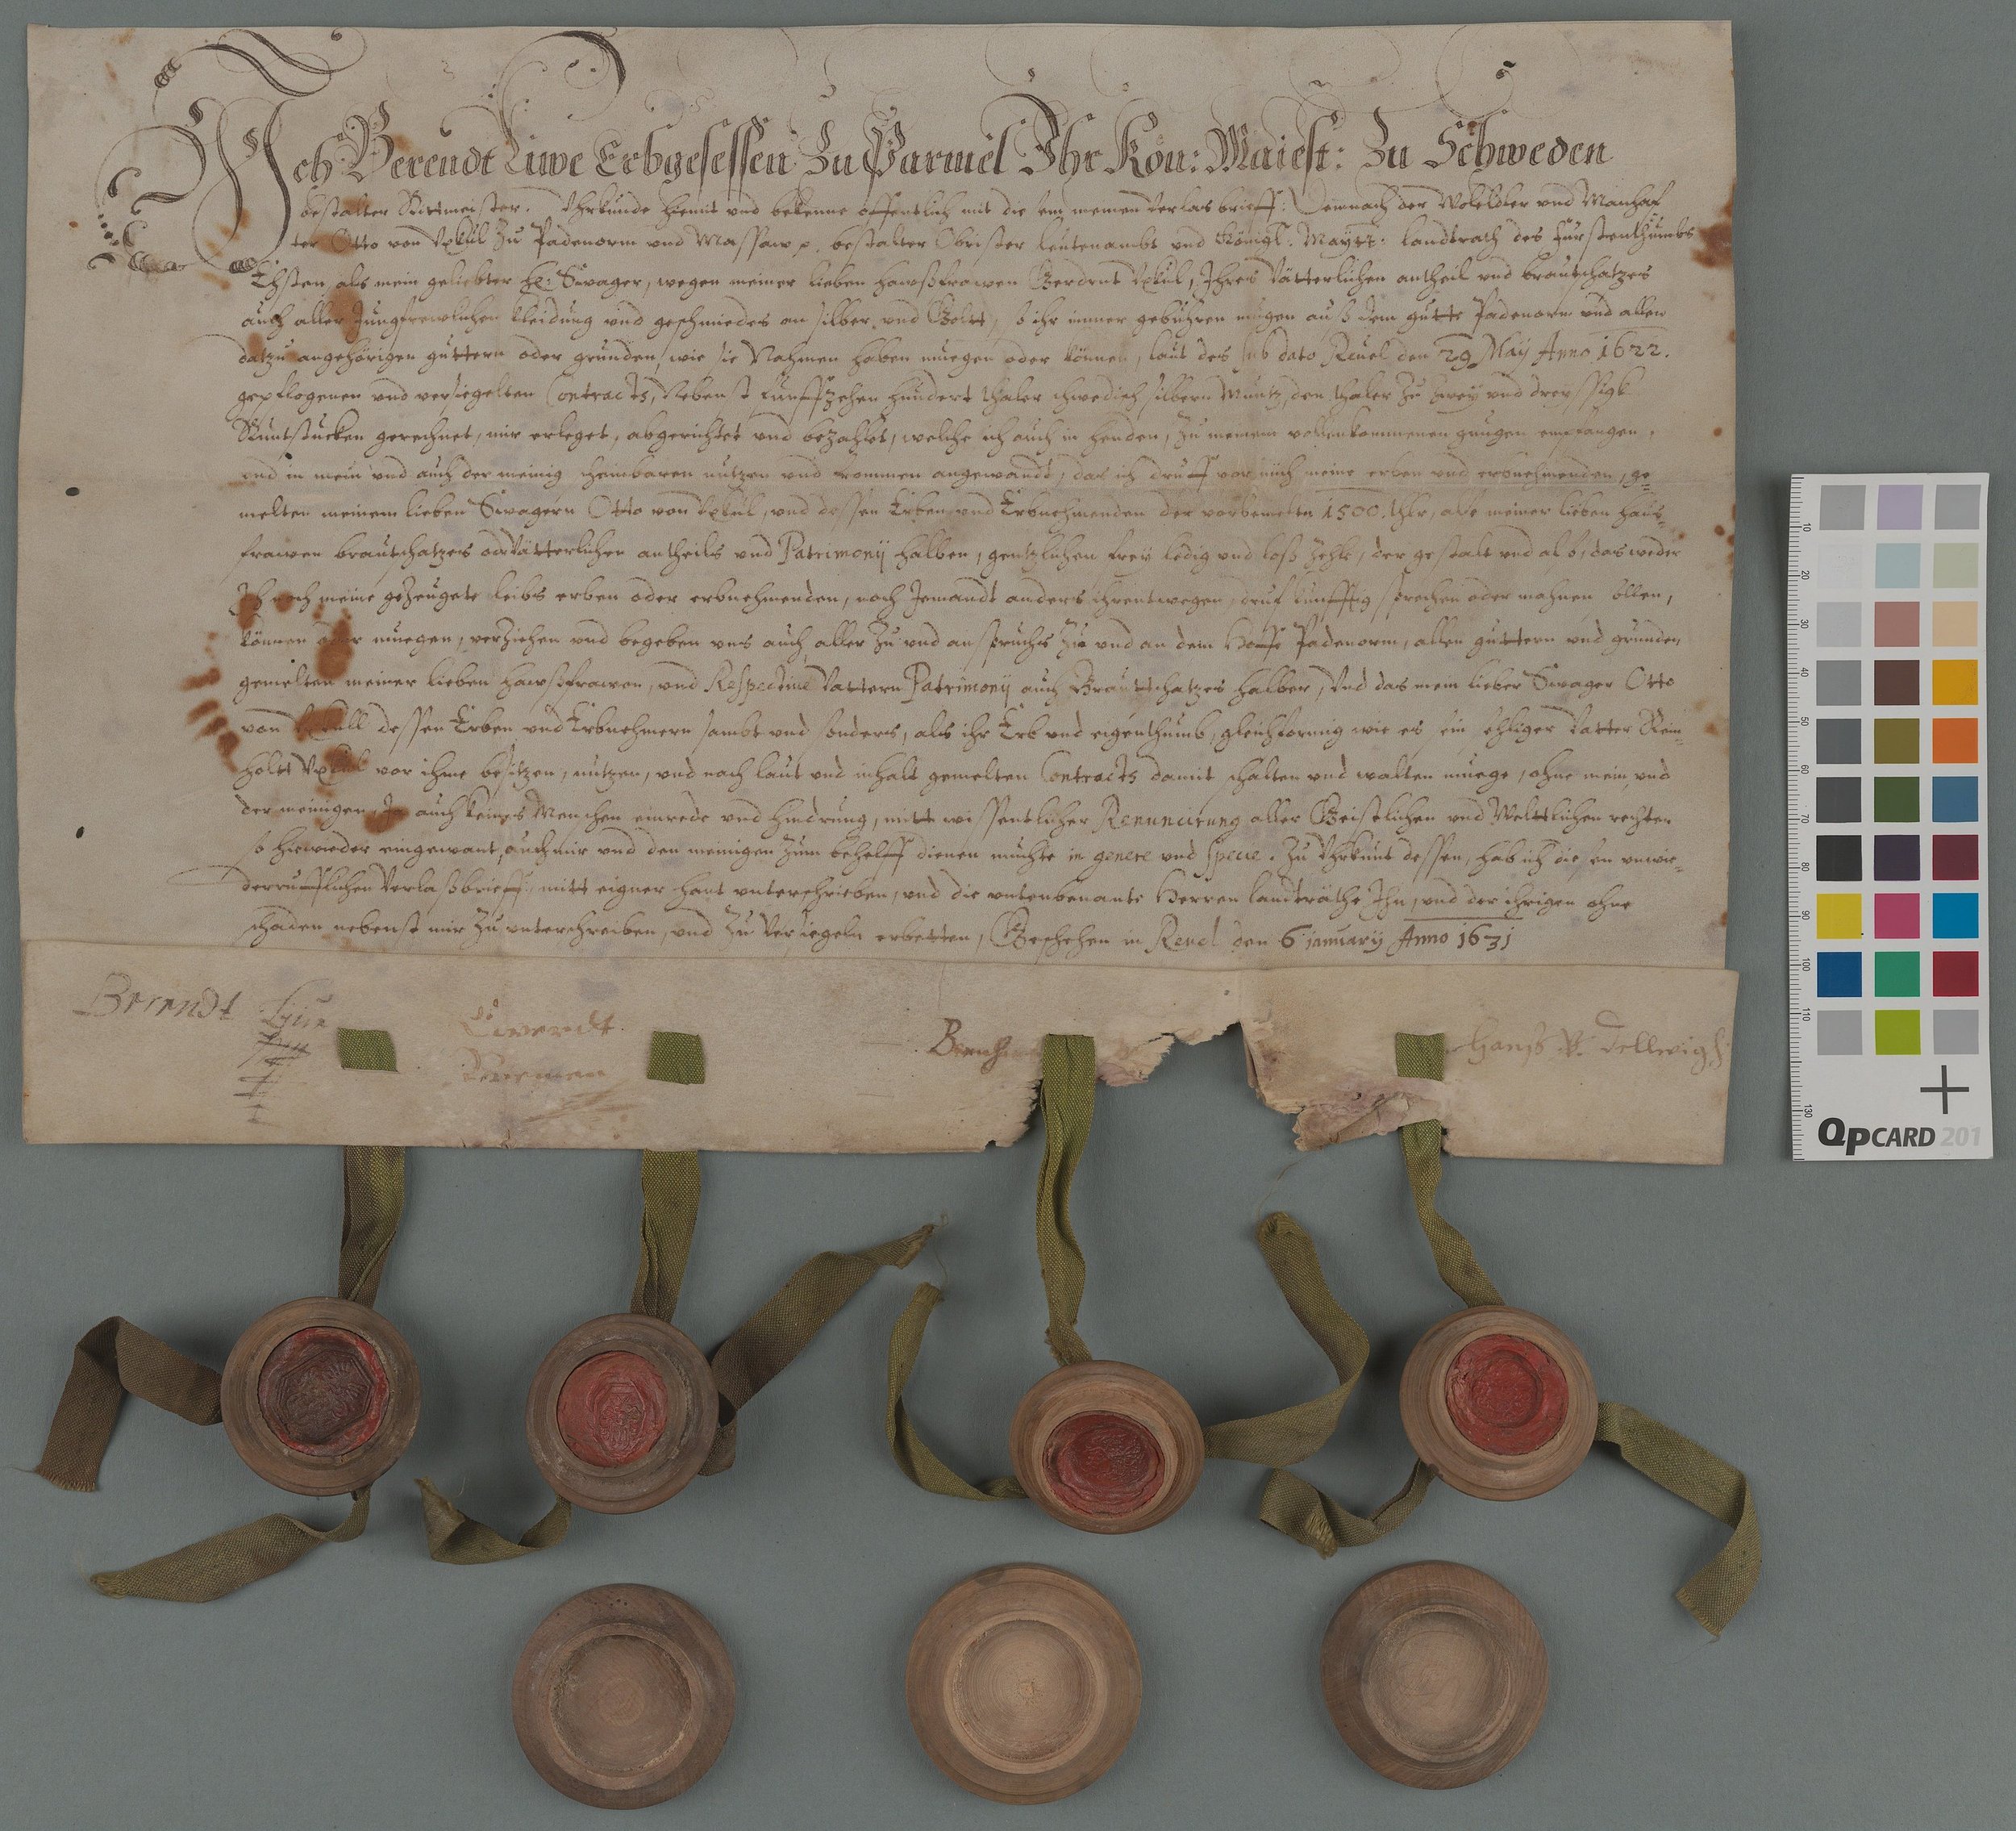 Ich Berendt Liwe Erbgesessen Zu Parmel Ihr Kön: Maiest: Zu Schweden
bestalter Rittmeister. Uhrkunde hiemit und bekenne offentlich mit diesem meinen verlas brieff: Demnach der Woleddler und Manhaf
ter Otto von Uxkul Zu Padenorm und Massaw p. bestalter Obrister leutenambt und Königl. Maytt: landtrath des Fürstenthumbs
Ehsten als mein geliebter H: Swager, wegen meiner lieben hausfrawen Gerdrut Uxkul, Ihres Vätterlichen antheil und brautschatzes
auch aller Jungfrewlichen kleidung und geschmiedes an silber und Goltt, so ihr immer gebühren mügen auß dem gutte Padenorm und allen
datzu angehörigen guttern oder grunden, wie sie Nahmen haben muegen oder können, laut des sub dato Revel den 29 May Anno 1622.
gepflogenen und versiegelten Contracts, Nebenst funffzehen hundert thaler schwedisch silbern Muntz, den thaler Zu zwey und dreyssigk
Runtstucken gerechnet, mir erleget, abgerichtet und bezahlet, welche ich auch in henden, Zu meinem vollenkommenen gnugen empfangen,
und in mein und auch der meinig scheinbaren nutzen und frommen angewandt, das ich druff vor mich meine erben und erbnehmenden, ge-
melten meinem lieben Swagern Otto von Uxkul, und dessen Erben und Erbnehmenden der vorbemelten 1500. thlr, alse meiner lieben haus-
frawen brautschatzes oder Vätterlichen antheils und Patrimonij halben, gentzlichen frey ledig und loß zehle, der gestalt und also, das weder
Ich noch meine gezeugete leibs erben oder erbnehmenden, noch Jemandt anders ihrentwegen, druf kunfftig sprechen oder mahnen sollen,
können oder muegen, verziehen und begeben uns auch aller Zu und ansprüches Zu und an dem Hoffe Padenorm, allen guttern und grunden
gemelten meiner lieben hausfrawen, und Respective Vattern Patrimonij auch Brauttschatzes halben, Und das mein lieber Swager Otto
von Uxkull dessen Erben und Erbnehmern sambt und sonders, als ihr Erb und eigenthumb, gleichformig wie es sein sehliger Vatter Rein-
holtt Uxkul vor ihme besitzen, nutzen, und nach laut und inhalt gemelten Contracts damit schalten und walten muege, ohne mein und
der meinigen, Ja auch keines Menschen einrede und hindrung, mitt wissentlicher Renuncirung aller Geistlichen und Weltlichen rechten
so hiewieder eingewant, auch mir und den meinigen zum behelff dienen muchte in genere und specie. Zu Uhrkunt dessen, hab ich diesen unwie-
derrufflichen Verlaßbrieff, mitt eigner hant unterschrieben, und die untenbenante Herren landträthe Ihn, und der ihrigen ohne
schaden nebenst mir Zu unterschreiben, und Zu Versiegeln erbetten, Geschehen in Revel den 6 january Anno 1631
Berendt Liwe
Ewerdt
Hans V. Dellwigh
QPCARD 201
10
20
30
40
50
60
70
80
90
100
110
130